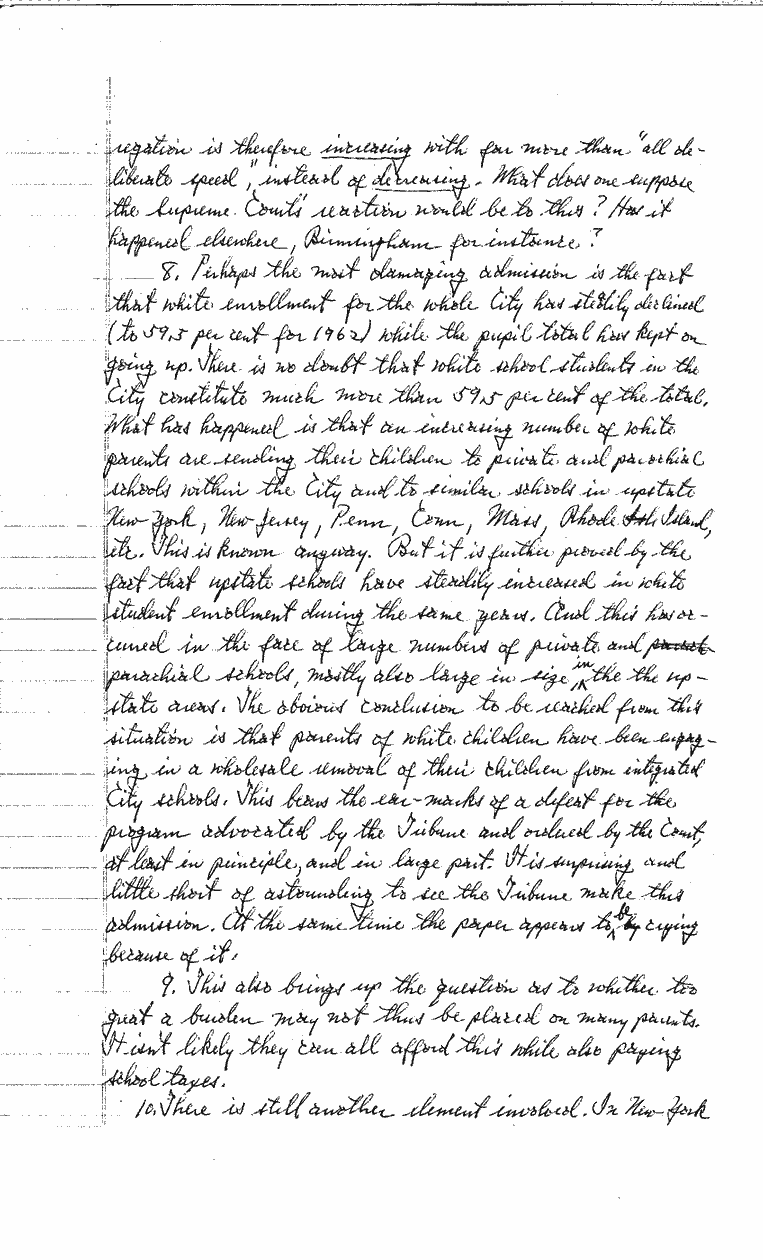 regation is therefore increasing with far more than "all de-
liberate speed", instead of decreasing. What does one suppose
the Supreme Court's reaction would be to this? Has it
happened elsewhere, Birmingham for instance?
8. Perhaps the most damaging admission is the fact
that white enrollment for the whole City has stedily declined
(to 59.5 per cent for 1962) while the pupil total has kept on
going up. There is no doubt that white school students in the
City constitute much more than 59.5 per cent of the total.
What has happened is that an increasing number of white
parents are sending their children to private and parochial
schools within the City and to similar schools in upstate
New York, New Jersey, Penn, Conn, Mass, Rhode Island,
etc. This is known anyway. But it is further proved by the
fact that upstate schools have steadily increased in white
student enrollment during the same years. And this has oc-
curred in the face of large numbers of private and
parachial schools, mostly also large in size, in the the up-
state areas. The obvious conclusion to be reached from this
situation is that parents of white children have been engag-
ing in a wholesale removal of their children from integrated
City schools. This bears the ear-marks of a defeat for the
program advocated by the Tribune and ordered by the Court,
at least in principle, and in large part. It is surprising and
little short of astounding to see the Tribune make this
admission. At the same time the paper appears to be crying
because of it.
9. This also brings up the question as to whether too
great a burden may not thus be placed on many parents.
It isn't likely they can all afford this while also paying
school taxes.
10. There is still another element involved. In New York